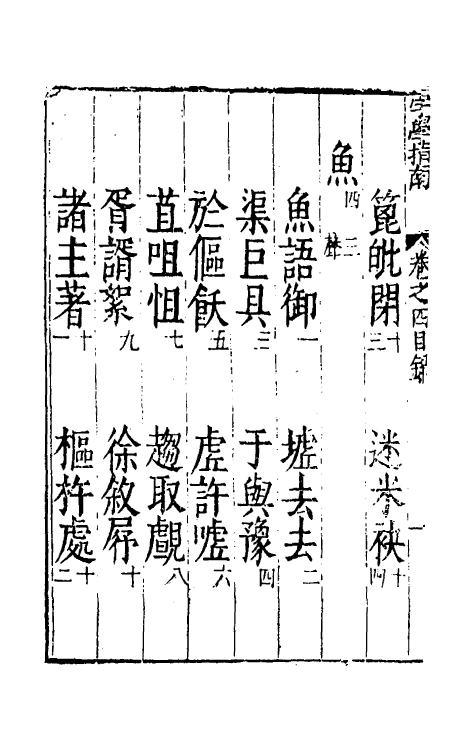 字學指南 卷之四目錄 一
篦 閉十三 迷米袂十四
魚四
魚語御一 墟去去二
渠巨具三 于與豫四
於傴飫五 虛許噓六
苴咀怚七 趨取覷八
胥諝絮九 徐敘 十
諸主著十一 樞杵處十二